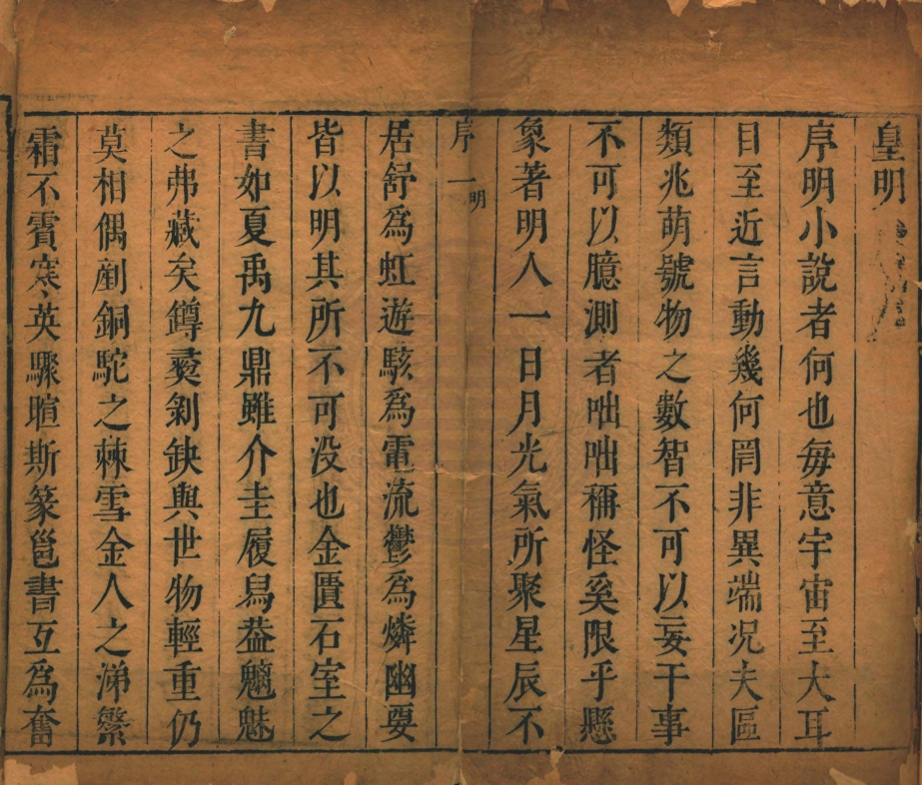 皇明
序明小說者何也每意宇宙至大耳
目至近言動幾何罔非異端况夫區
類兆萌號物之數智不可以妄干事
不可以臆測者咄咄稱怪奚限乎懸
象著明人一日月光氣所聚星辰不
序 一 明
居舒爲虹遊駭爲電流鬱爲燐幽耍
皆以明其所不可没也金匱石室之
書如夏禹九鼎雖介圭履舄葢魑魅
之弗藏矣鐏彛剝缺與世物輕重仍
莫相偶剷銅駝之棘雪金人之涕繁
霜不賓寒英驟暄斯篆邕書互爲奮